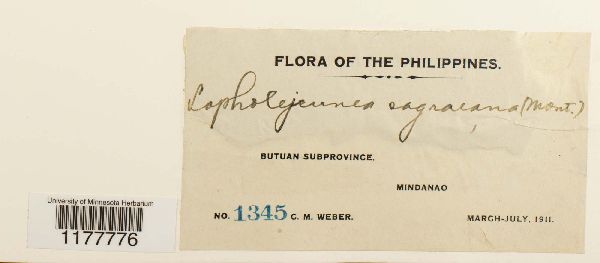 FLORA OF THE PHILIPPINES.
Lopholejeunea sagraeana (Mont.)
BUTUAN SUBPROVINCE,
MINDANAO
NO. 1345 C. M. WEBER. MARCH-JULY, 1911.
University of Minnesota Herbarium
1177776